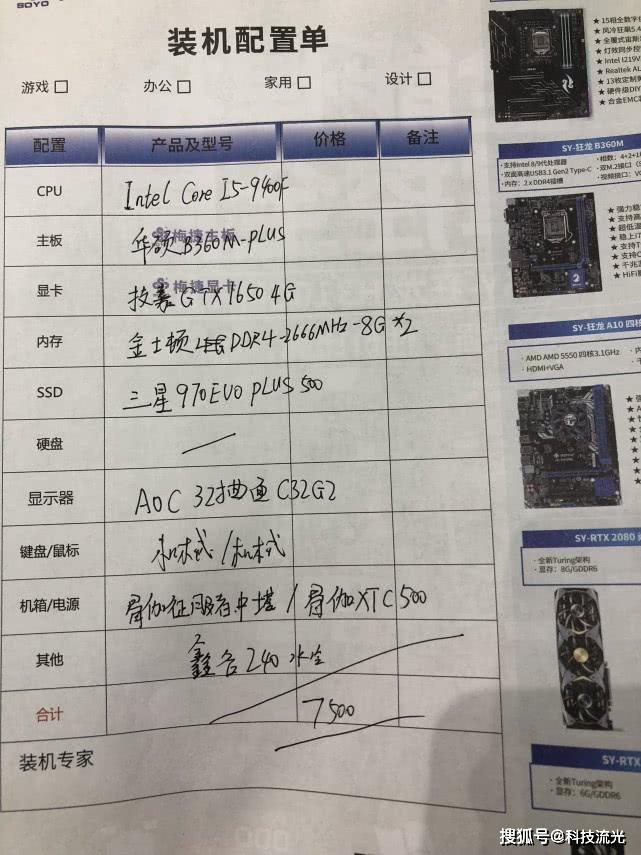 SOYO
装机配置单
游戏 □ 办公 □ 家用 □ 设计 □
配置 产品及型号 价格 备注
CPU Intel Core I5-9400F
主板 华硕B360M-PLUS
梅捷主板
显卡 技嘉GTX1650 4G
梅捷显卡
内存 金士顿 DDR4-2666MHz-8G×2
SSD 三星970EVO PLUS 500
硬盘 —
显示器 AOC 32 C32G2
键盘/鼠标 机械式/机械式
机箱/电源 骨伽征服者中塔/骨伽XTC500
其他 鑫谷240水冷
合计 7500
装机专家
★ 15相全数字
★ 风冷狂飙5.4
★ 全覆式宙斯
★ 灯效同步控
★ Intel I219V
★ Realtek AL
★ 13枚定制
★ 硬件级DIY
★ 合金EMC
SY-狂龙 B360M
· 支持Intel 8/9代处理器 · 相数：4+2+1
· 双面高速USB3.1 Gen2 Type-C · 双M.2接口
· 内存：2 x DDR4插槽 · 视频接口：VG
★ 强力稳
★ 支持高
★ 超低温
★ 稳上i7
★ 支持T
★ 支持C
★ 千兆
★ HiFi
SY-狂龙 A10 四核
· AMD AMD 5550 四核3.1GHz · 内
· HDMI+VGA
SY-RTX 2080
· 全新Turing架构
· 显存：8G/GDDR6
SY-RTX
· 全新Turing架构
· 显存：6G/GDDR6
搜狐号@科技流光